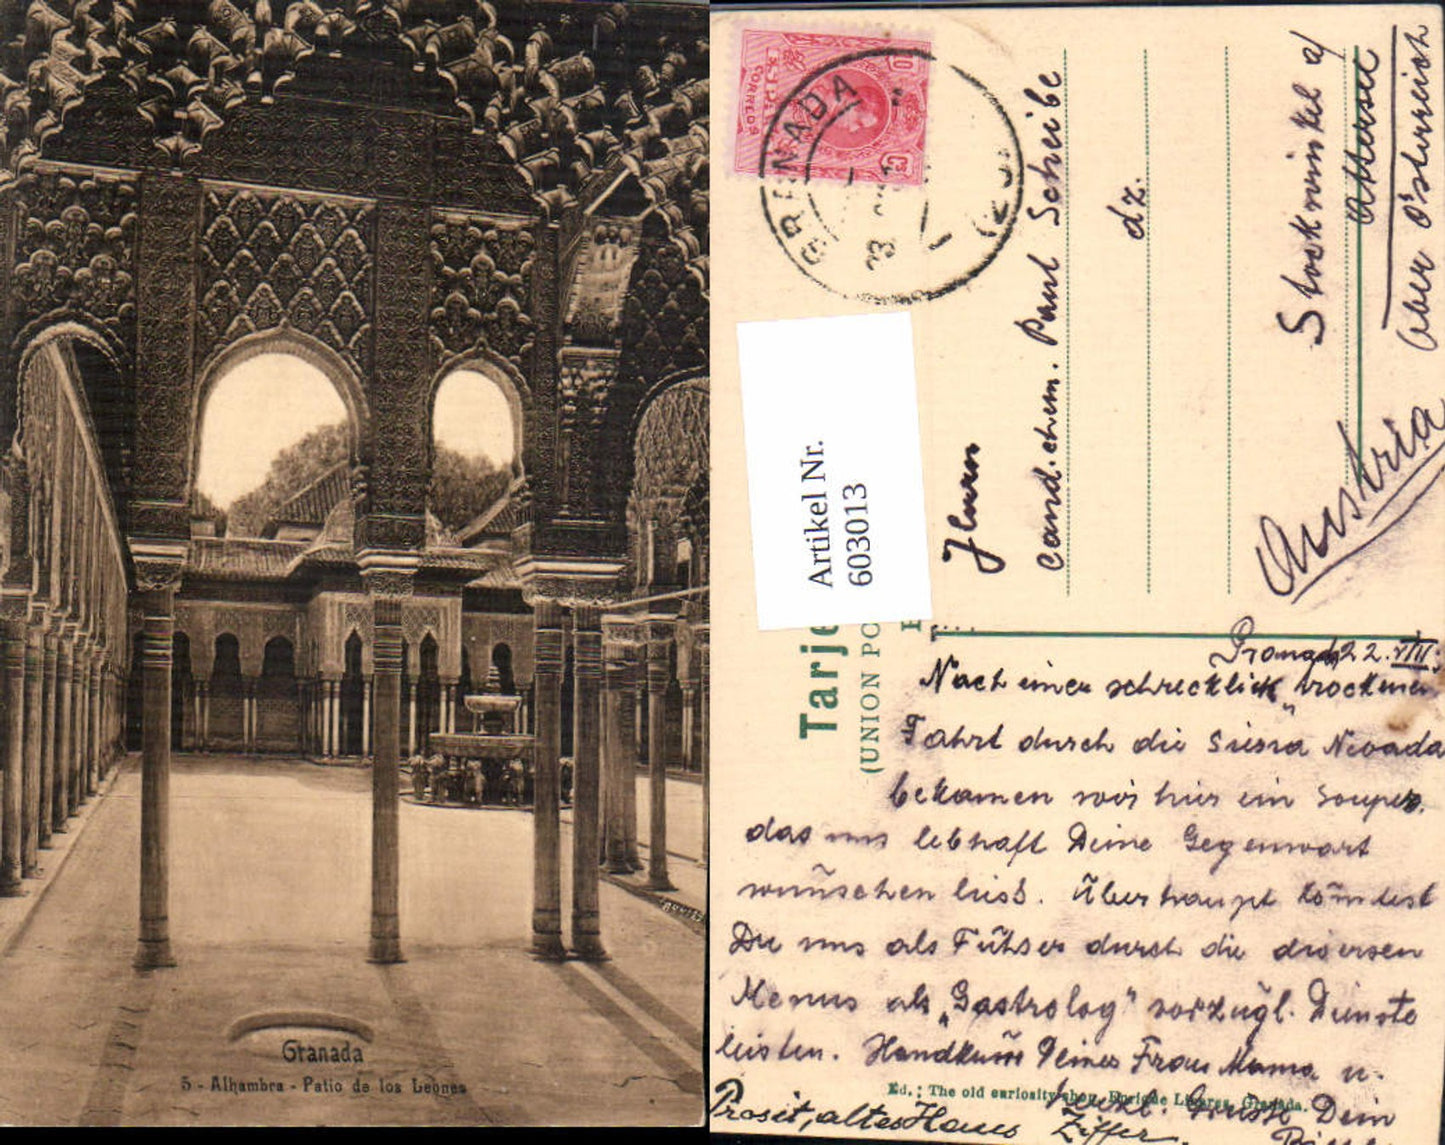 Granada
5 - Alhambra - Patio de los Leones
CORREOS
GRANADA
Artikel Nr.
603013
Tarje
(UNION PO
Herrn
cand. chem. Paul Scheibe
dz.
Stockwinkel a/
Attersee
Ober Österreich
Austria
22. VIII.
Nach einer schrecklich "trockenen
Fahrt durch die Sierra Nevada
bekamen wir hier ein Souper,
das uns lebhaft Deine Gegenwart
wünschen liess. Überhaupt könntest
Du uns als Führer durch die diversen
Menus als „Gastrolog" vorzügl. Dienste
leisten. Handkuss Deiner Frau Mama u.
herzl. Grüsse Dein
Ed.: The old curiosity shop, Enrique Linares, Granada.
Prosit, altes Haus Ziffer.